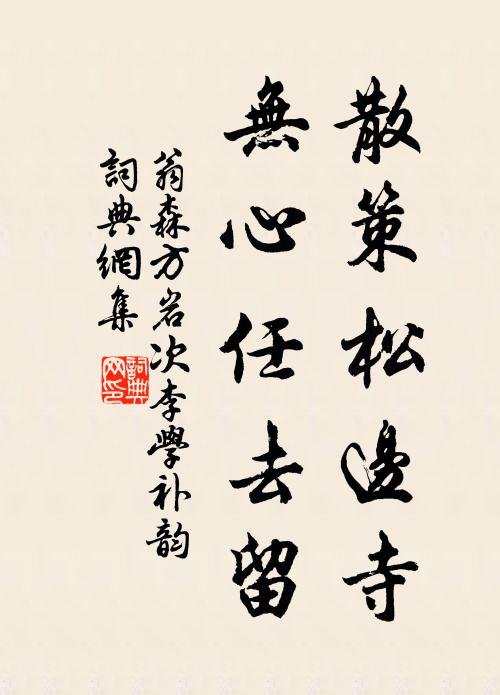 散策松邊寺
無心任去留
翁森方岩次李學补韵
詞典網集
詞典网印